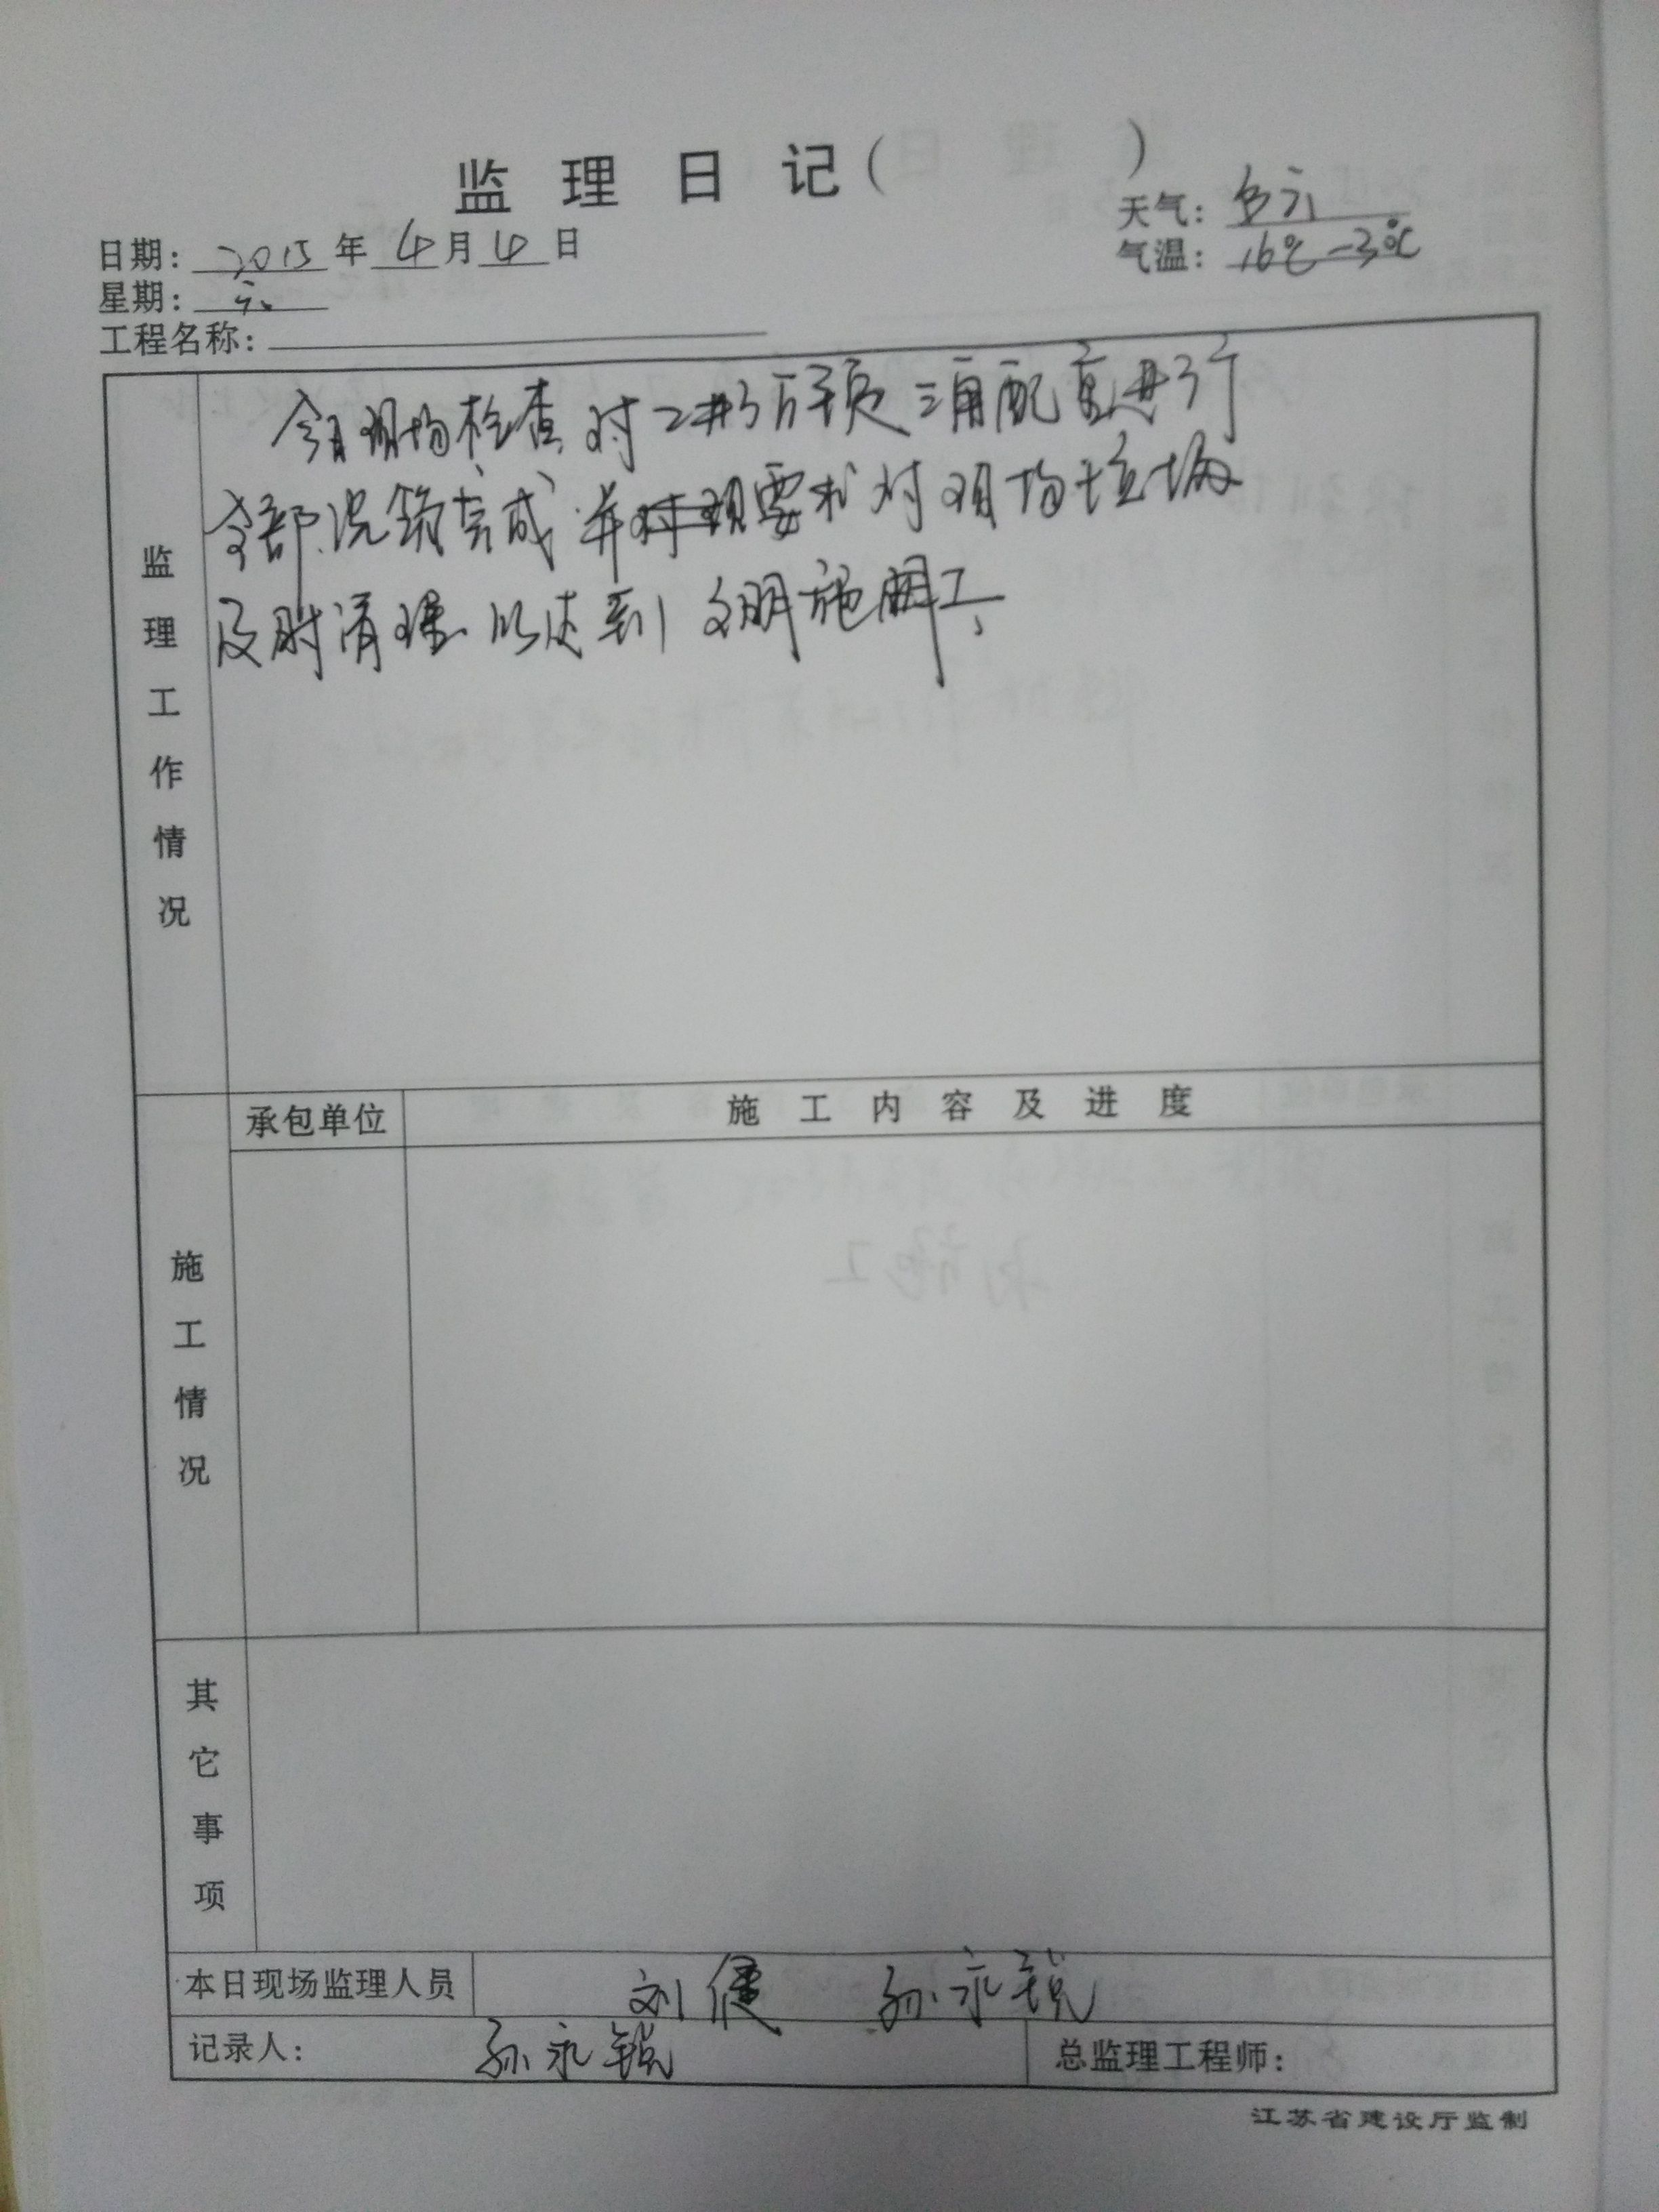 监理日记（ ）
天气：多云
日期：2015年4月4日
气温：16℃-3℃
星期：六
工程名称：
监理工作情况
今日现场检查对2#房屋三角配套进行
全部浇筑完成并要求对现场垃圾
及时清理以达到文明施工
承包单位
施工内容及进度
施工情况
其它事项
本日现场监理人员 刘健 孙永锐
记录人：孙永锐
总监理工程师：
江苏省建设厅监制